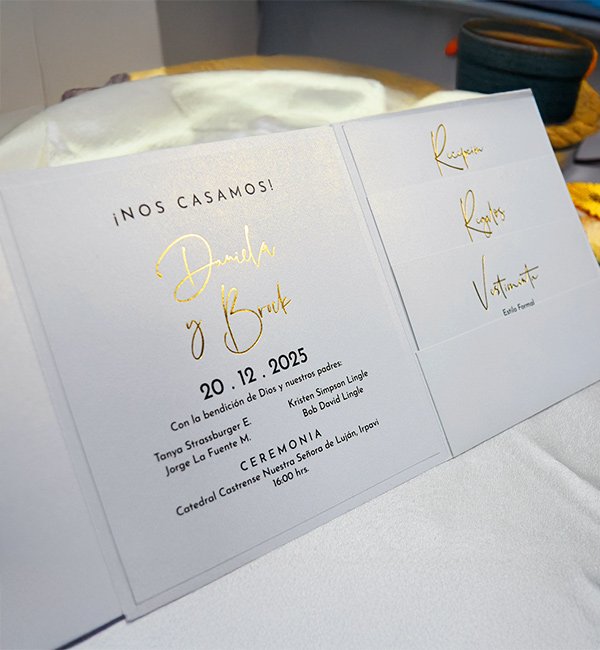 ¡NOS CASAMOS!
Daniela
y Brock
20 . 12 . 2025
Con la bendición de Dios y nuestros padres:
Tanya Strassburger E.
Jorge La Fuente M.
Kristen Simpson Lingle
Bob David Lingle
CEREMONIA
Catedral Castrense Nuestra Señora de Luján, Irpavi
16:00 hrs.
Recepción
Regalos
Vestimenta
Estilo Formal